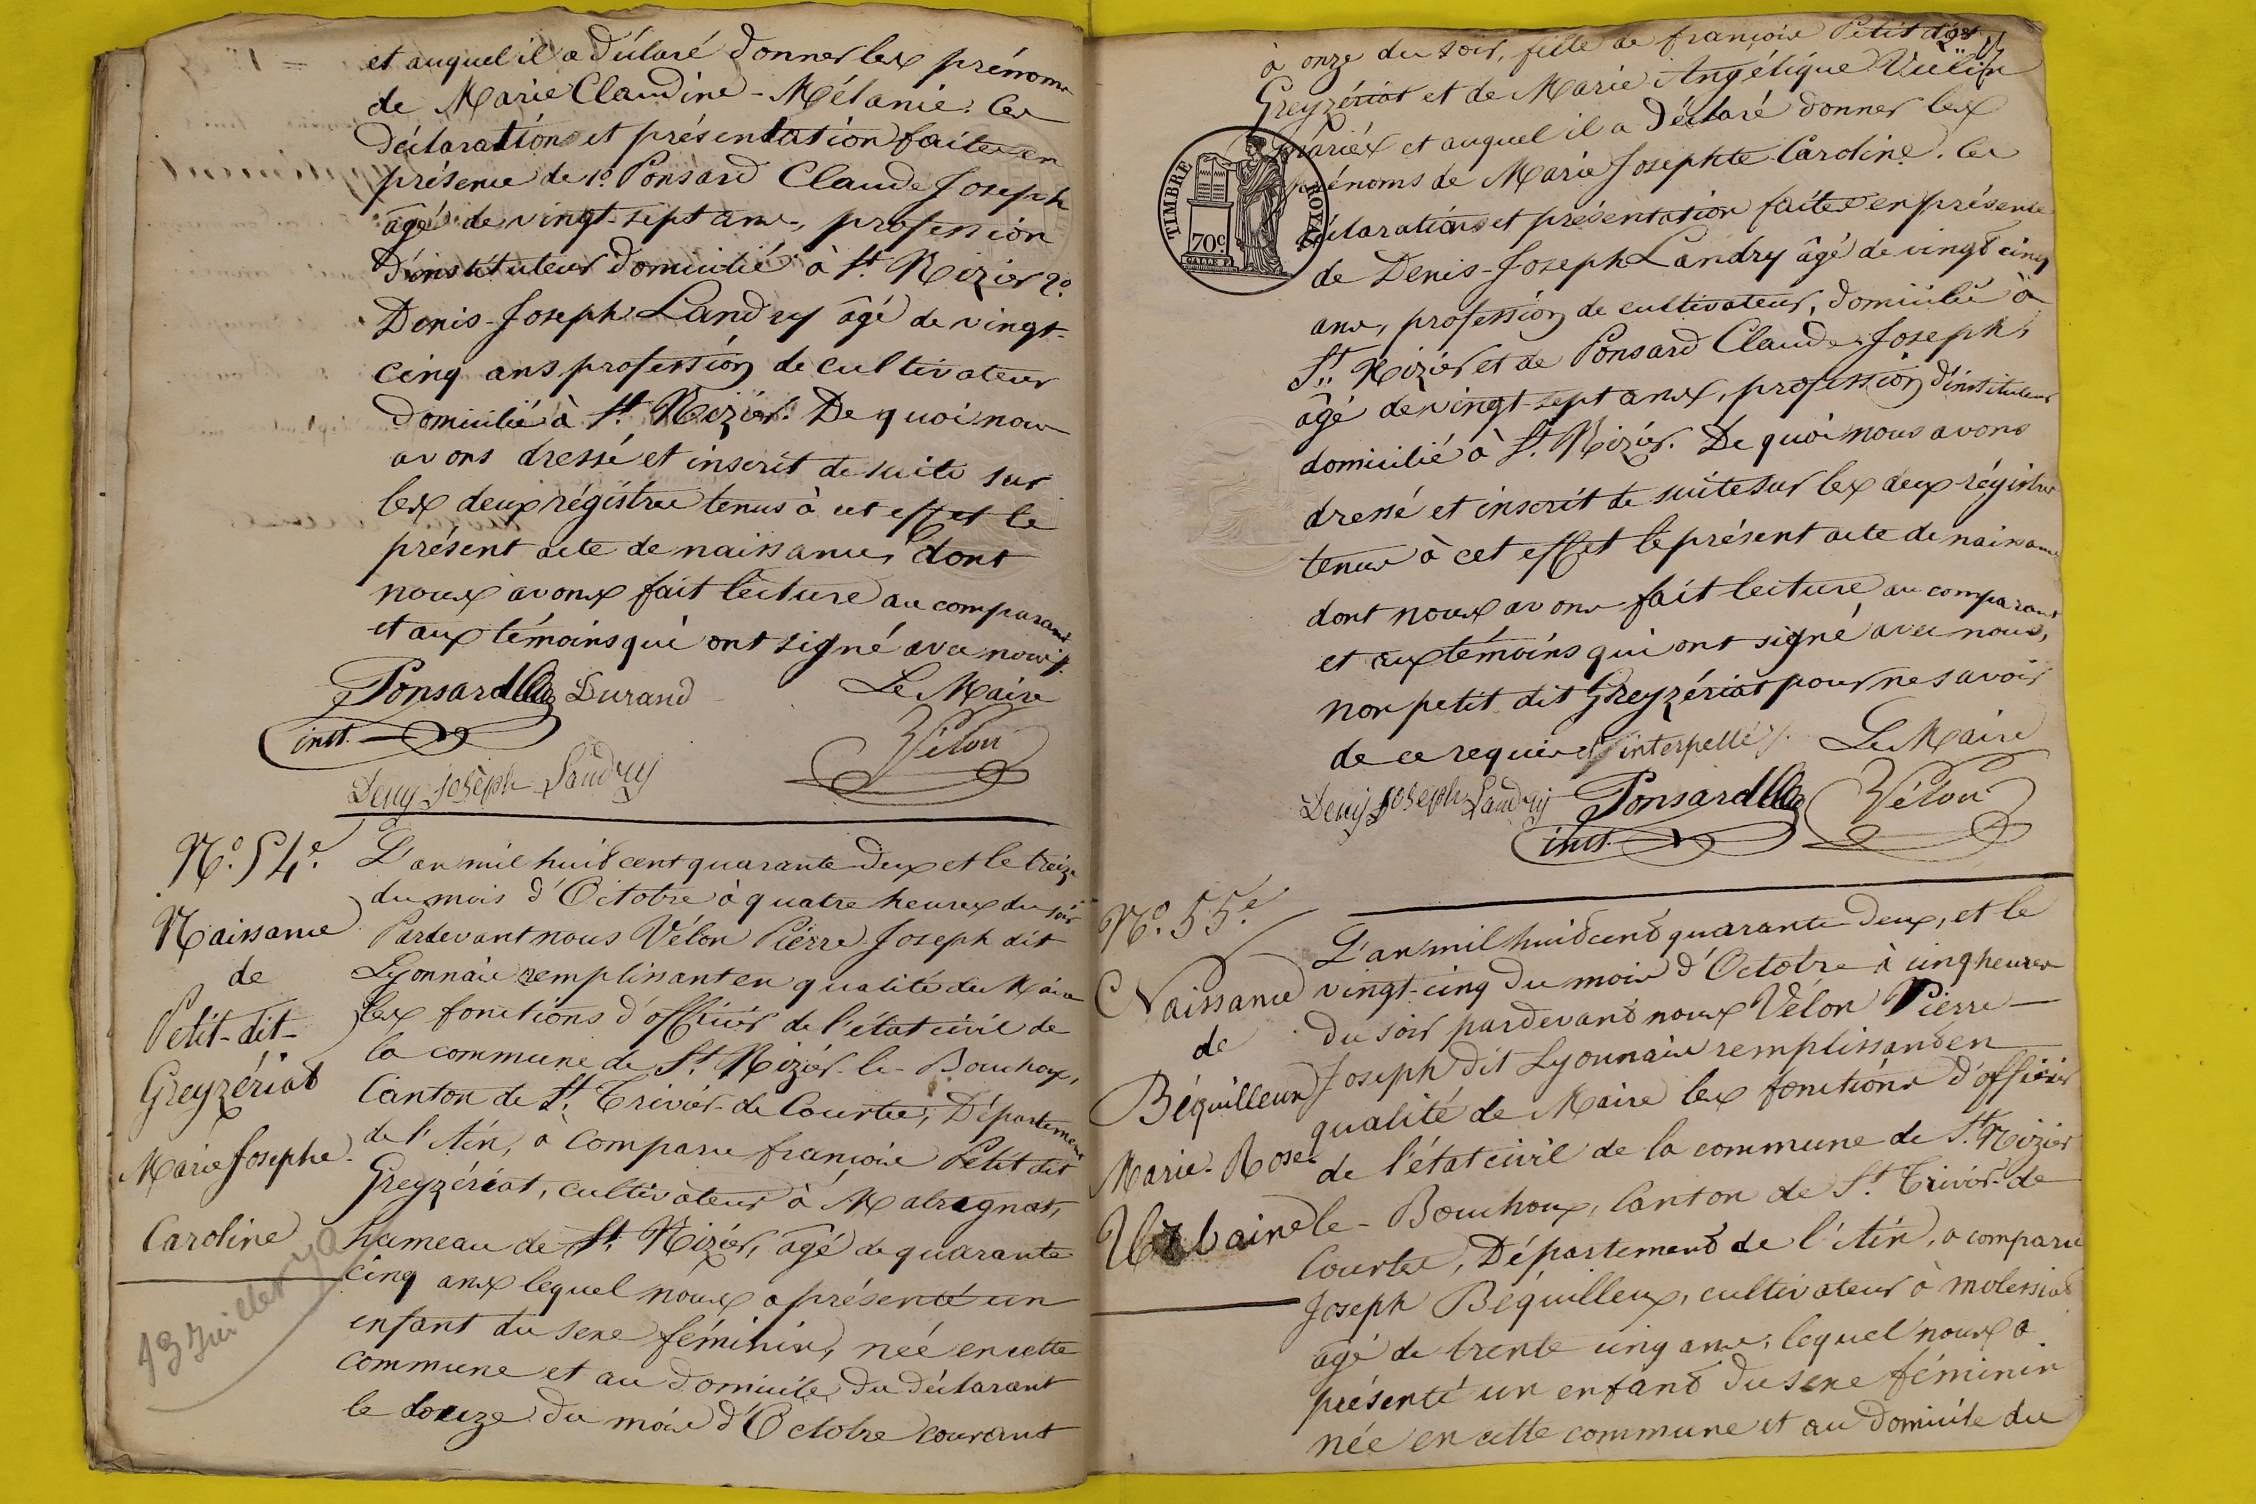 et auquel il a déclaré donner les prénoms
de Marie Claudine-Mélanie. Ces
déclaration et présentation faites en
présence de 1º. Ponsard Claude Joseph
âgé de vingt-sept ans, profession
d'instituteur domicilié à St. Nizier 2º.
Denis-Joseph Landry âgé de vingt-
cinq ans profession de cultivateur
domicilié à St. Nizier. De quoi nous
avons dressé et inscrit de suite sur
les deux régistres tenus à cet effet le
présent acte de naissance, dont
nous avons fait lecture au comparant
et aux témoins qui ont signé avec nous.
Ponsard Cl. Durand Le Maire
inst. Vélon
Deny Joseph Landry
Nº. 54e.
Naissance
de
Petit-dit-
Greyzériat
Marie Josephe
Caroline
13 Juillet
L'an mil huit cent quarante deux et le treize
du mois d'Octobre à quatre heures du soir
Pardevant nous Vélon Pierre Joseph dit
Lyonnais remplissant en qualité de Maire
les fonctions d'officier de l'état civil de
la commune de St. Nizier-le-Bouchoux,
Canton de St. Trivier-de Courtes, Département
de l'Ain, à comparu françois Petit dit
Greyzériat, cultivateur à Malragnat,
hameau de St. Nizier, âgé de quarante
cinq ans lequel nous a présenté un
enfant du sexe féminin, née en cette
commune et au domicile du déclarant
le douze du mois d'Octobre courant
à onze du soir, fille de françois Petit dit
Greyzériat et de Marie Angélique Vulin
mariés et auquel il a déclaré donner les
prénoms de Marie Josephte Caroline. Ces
déclarations et présentation faites en présence
de Denis-Joseph Landry âgé de vingt cinq
ans, profession de cultivateur, domicilié à
St. Nizier et de Ponsard Claude Joseph,
âgé de vingt-sept ans, profession d'instituteur
domicilié à St. Nizier. De quoi nous avons
dressé et inscrit de suite sur les deux régistres
tenus à cet effet le présent acte de naissance
dont nous avons fait lecture au comparant
et aux témoins qui ont signé avec nous,
non petit dit Greyzériat pour ne savoir
de ce requis et interpellé. Le Maire
Deny Joseph Landry Ponsard Cl. Vélon
inst.
TIMBRE ROYAL
70c.
Nº. 55e.
Naissance
de
Béguilleux
Marie-Rose
Urbaine
L'an mil huit cent quarante deux, et le
vingt-cinq du mois d'Octobre à cinq heures
du soir pardevant nous Vélon Pierre
Joseph dit Lyonnais remplissant en
qualité de Maire les fonctions d'officier
de l'état civil de la commune de St. Nizier
le-Bouchoux, Canton de St. Trivier-de
Courtes, Département de l'Ain, a comparu
Joseph Béguilleux, cultivateur à molersiat
âgé de trente cinq ans, lequel nous a
présenté un enfant du sexe féminin
née en cette commune et au domicile du